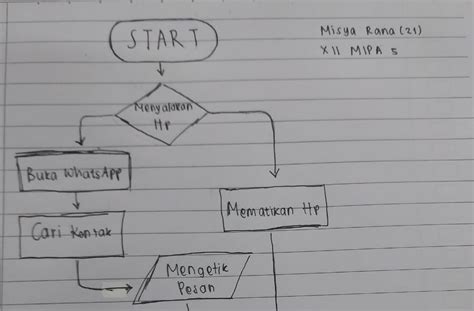 START
Misya Rana (21)
XII MIPA 5
Menyalakan
Hp
Buka WhatsApp
Mematikan Hp
Cari Kontak
Mengetik
Pesan